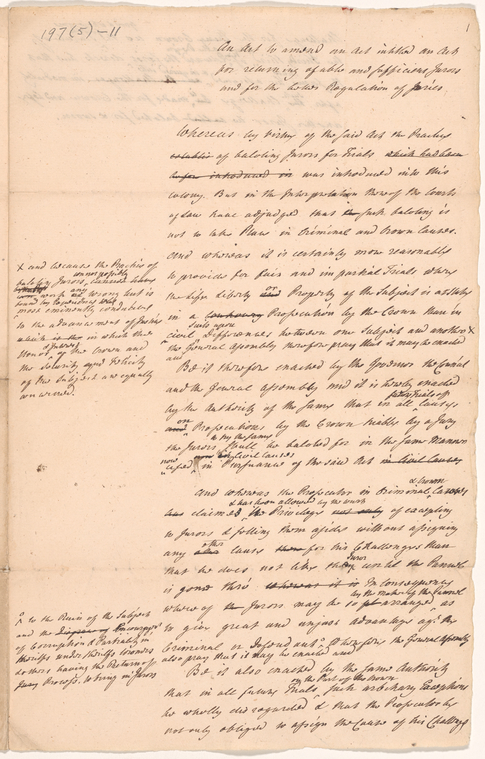 197(5)-11
1
An Act to amend an Act intitled an Act
for returning of able and sufficient Jurors
and for the better Regulation of Juries.
Whereas by virtue of the said Act the Practice
of baloting Jurors for Trials which had been
before introduced in was introduced into this
colony. But in the Interpretation thereof the Courts
of Law have adjudged that the such baloting is
not to take Place in Criminal and Crown Causes.
And whereas it is certainly more reasonable
to provide for fair and impartial Trials where
the Life Liberty and or Property of the Subject is at stake
in a Prosecution by the Crown than in
Suits upon
civil Differences between one Subject and another X
the General Assembly therefore pray that it may be enacted
and
Be it therefore enacted by the Governor the Council
and the General Assembly and it is hereby enacted
by the Authority of the same that in all future Trials of Causes
and on Prosecutions by the Crown triable by a Jury
the Jurors shall be baloted for in the same Manner
now used in civil causes in Pursuance of the said Act in Civil Causes
X and because the Practice of
baloting Jurors, cannot possibly
work any wrong but is
most eminently conducive
to the advancement of Justice
which is the in which the
Honor, & Interest of the Crown and
the security and Felicity
of the Subject are equally
concerned.
And whereas the Prosecutor in Criminal & Crown Causes
has claimed & has been allowed by the Courts the Privilege not only of excepting
to Jurors & setting them asides without assigning
any other cause for his Challenges than
that he does not like them until the Pannel
is gone thro' whereas it is In consequence
whereof the Jurors may be so arranged by the maker of the Pannel as
to give great and unjust advantage agt. the
Criminal or Defendant, ^ Wherefore the General Assembly
also pray that it may be enacted and
^ to the Ruin of the Subject
and the Encouragemt
of Corruption & Partiality in
Sheriffs under Sheriffs Coroners
& others having the Return of
Jury Process, to bring in Jurors
Be it also enacted by the same Authority
that in all future Trials on the Part of the Crown such arbitrary Exceptions
be wholly disregarded & that the Prosecutor be
not only obliged to assign the Cause of his Challenge